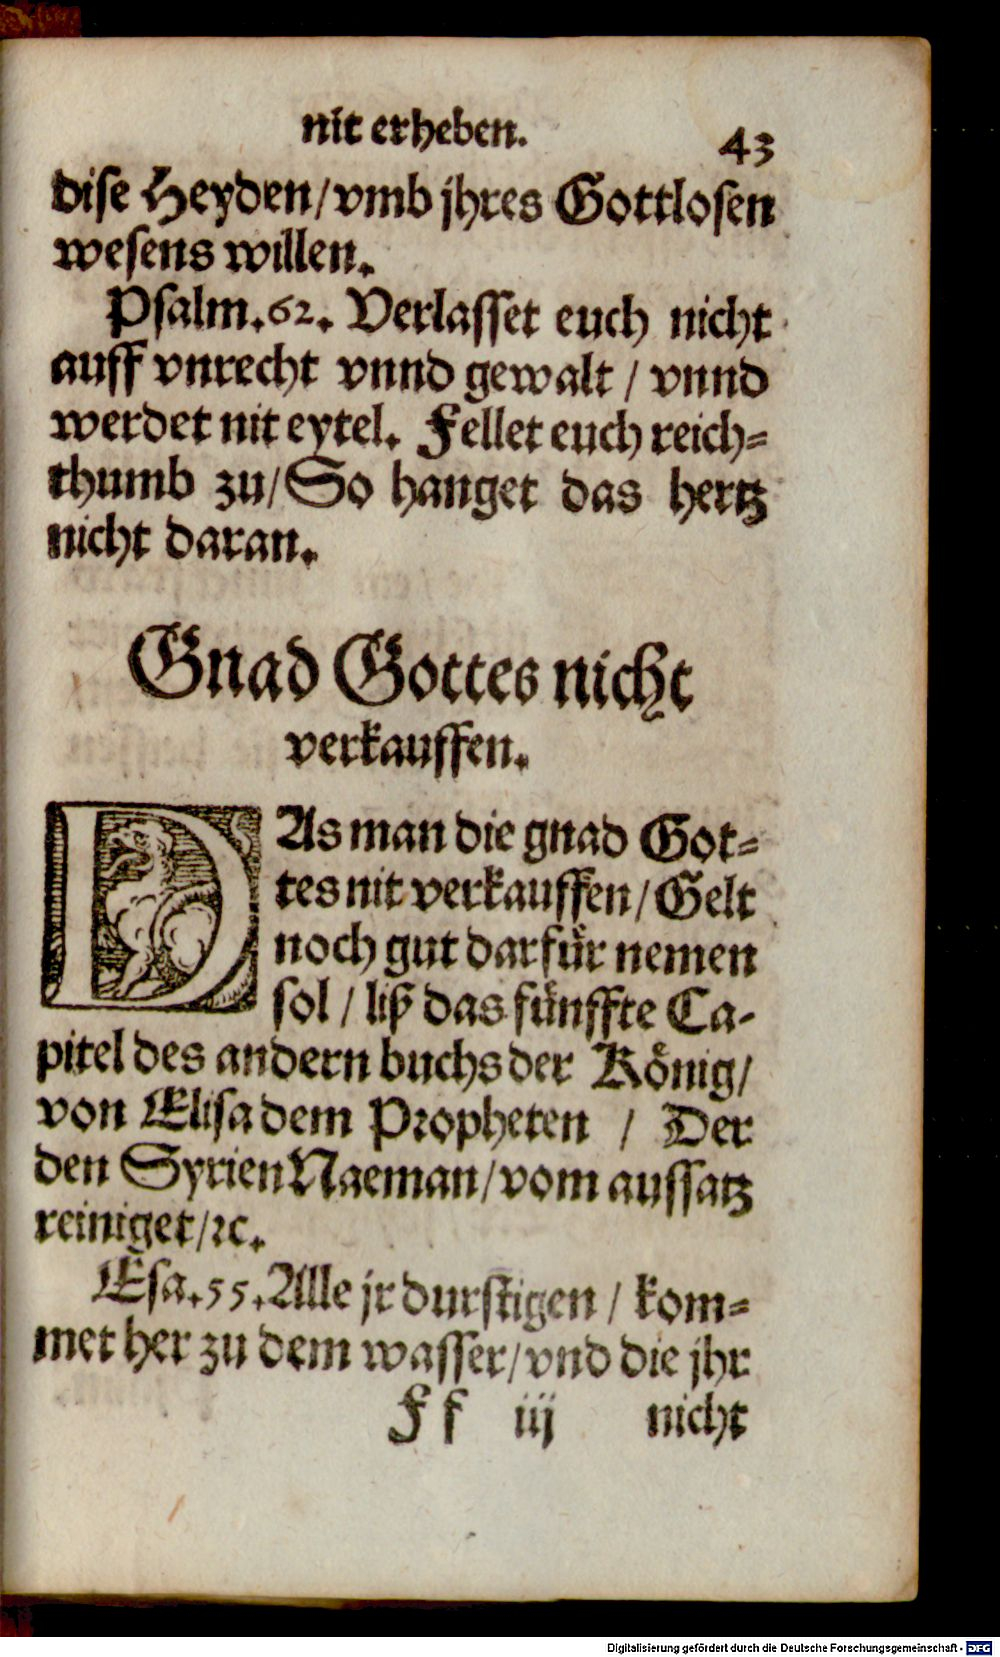 nit erheben.
43
dise Heyden/vmb jhres Gottlosen
wesens willen.
Psalm.62. Verlasset euch nicht
auff vnrecht vnnd gewalt / vnnd
werdet nit eytel. Fellet euch reich=
thumb zu/So hanget das hertz
nicht daran.
Gnad Gottes nicht
verkauffen.
DAs man die gnad Got=
tes nit verkauffen/Gelt
noch gut darfür nemen
sol / liß das fünffte Ca-
pitel des andern buchs der König/
von Elisa dem Propheten / Der
den Syrien Naeman/vom aussatz
reiniget/ꝛc.
Esa.55.Alle jr durstigen / kom=
met her zu dem wasser/vnd die jhr
Ff iij nicht
Digitalisierung gefördert durch die Deutsche Forschungsgemeinschaft - DFG